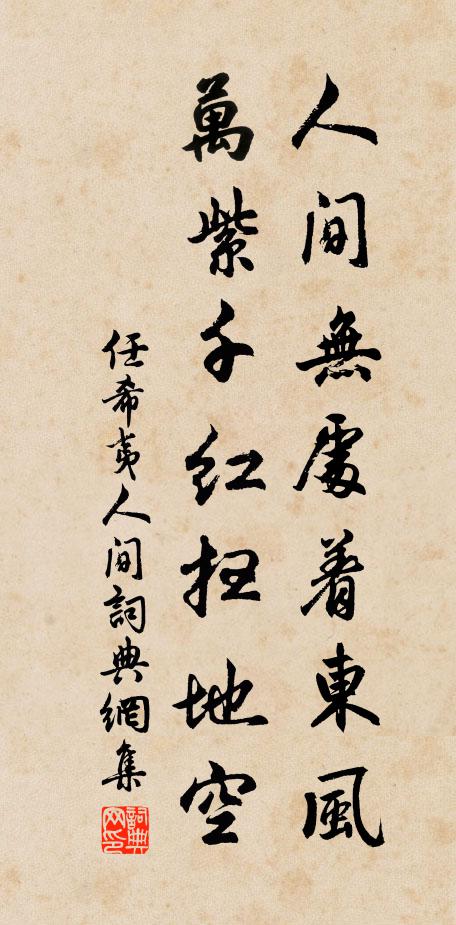 人間無處着東風
萬紫千紅掃地空
任希夷人間詞典網集
詞典
网印